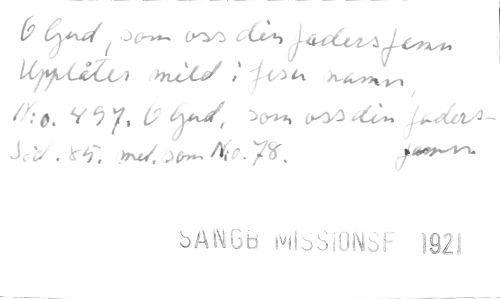 O Gud, som oss din fadersfamn
Upplåter mild i Jesu namn,
N:o. 497. O Gud, som oss din faders-
famn
Sid. 85. mel. som N:o. 78.
SANGB MISSIONSF 1921